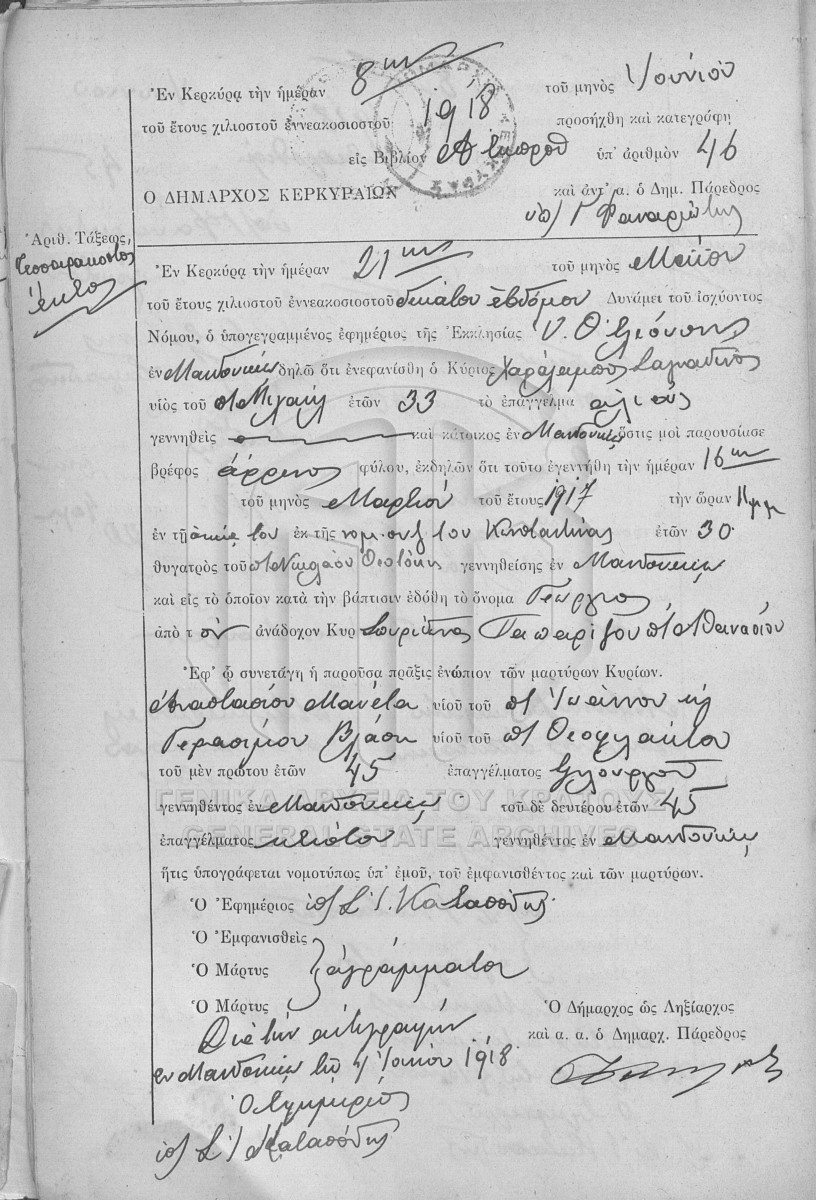 Ἐν Κερκύρᾳ τὴν ἡμέραν 8ην τοῦ μηνὸς Ἰουνίου
τοῦ ἔτους χιλιοστοῦ ἐννεακοσιοστοῦ 1918 προσήχθη καὶ κατεγράφη
εἰς Βιβλίον ὑπ' ἀριθμὸν 46
Ο ΔΗΜΑΡΧΟΣ ΚΕΡΚΥΡΑΙΩΝ καὶ ἀντ' α. ὁ Δημ. Πάρεδρος
Ἀριθ. Τάξεως,
Τεσσαρακοστὸς
ἕκτος
Ἐν Κερκύρᾳ τὴν ἡμέραν 21ην τοῦ μηνὸς Μαΐου
τοῦ ἔτους χιλιοστοῦ ἐννεακοσιοστοῦ δεκάτου ἑβδόμου Δυνάμει τοῦ ἰσχύοντος
Νόμου, ὁ ὑπογεγραμμένος ἐφημέριος τῆς Ἐκκλησίας Υ. Θ.
ἐν Μανδουκίῳ δηλῶ ὅτι ἐνεφανίσθη ὁ Κύριος Χαράλαμπος Σαγιαδινὸς
υἱὸς τοῦ ποτ Μιχαὴλ ἐτῶν 33 τὸ ἐπαγγέλμα ἁλιεὺς
γεννηθεὶς καὶ κάτοικος ἐν Μανδουκίῳ ὅστις μοὶ παρουσίασε
βρέφος ἄρρενος φύλου, ἐκδηλῶν ὅτι τοῦτο ἐγεννήθη τὴν ἡμέραν 16ην
τοῦ μηνὸς Μαρτίου τοῦ ἔτους 1917 τὴν ὥραν
ἐν τῇ οἰκίᾳ του ἐκ τῆς νομ. συζ. του Κωνσταντίνας ἐτῶν 30
θυγατρὸς τοῦ ποτ Νικολάου Θεοτόκη γεννηθείσης ἐν Μανδουκίῳ
καὶ εἰς τὸ ὁποῖον κατὰ τὴν βάπτισιν ἐδόθη τὸ ὄνομα Γεώργιος
ἀπὸ τὸν ἀνάδοχον Κυρ ποτ Ἀθανασίου
Ἐφ' ᾧ συνετάγη ἡ παροῦσα πρᾶξις ἐνώπιον τῶν μαρτύρων Κυρίων.
Ἀναστασίου Μανέτα υἱοῦ τοῦ ποτ Ἰωάννου κὶ
Γερασίμου Βλάση υἱοῦ τοῦ ποτ Θεοφυλάκτου
τοῦ μὲν πρώτου ἐτῶν 45 ἐπαγγέλματος ξυλουργοῦ
γεννηθέντος ἐν Μανδουκίῳ τοῦ δὲ δευτέρου ἐτῶν 45
ΓΕΝΙΚΑ ΑΡΧΕΙΑ ΤΟΥ ΚΡΑΤΟΥΣ
GENERAL STATE ARCHIVES
ἐπαγγέλματος κτίστου γεννηθέντος ἐν Μανδουκίῳ
ἥτις ὑπογράφεται νομοτύπως ὑπ' ἐμοῦ, τοῦ ἐμφανισθέντος καὶ τῶν μαρτύρων.
Ὁ Ἐφημέριος Καταπόδης
Ὁ Ἐμφανισθεὶς
Ὁ Μάρτυς ἀγράμματοι
Ὁ Μάρτυς Ὁ Δήμαρχος ὡς Ληξίαρχος
Διὰ τὴν ἀντιγραφὴν καὶ α. α. ὁ Δημαρχ. Πάρεδρος
ἐν Μανδουκίῳ τῇ Ἰουνίου 1918
Ὁ Ἐφημέριος
Καταπόδης